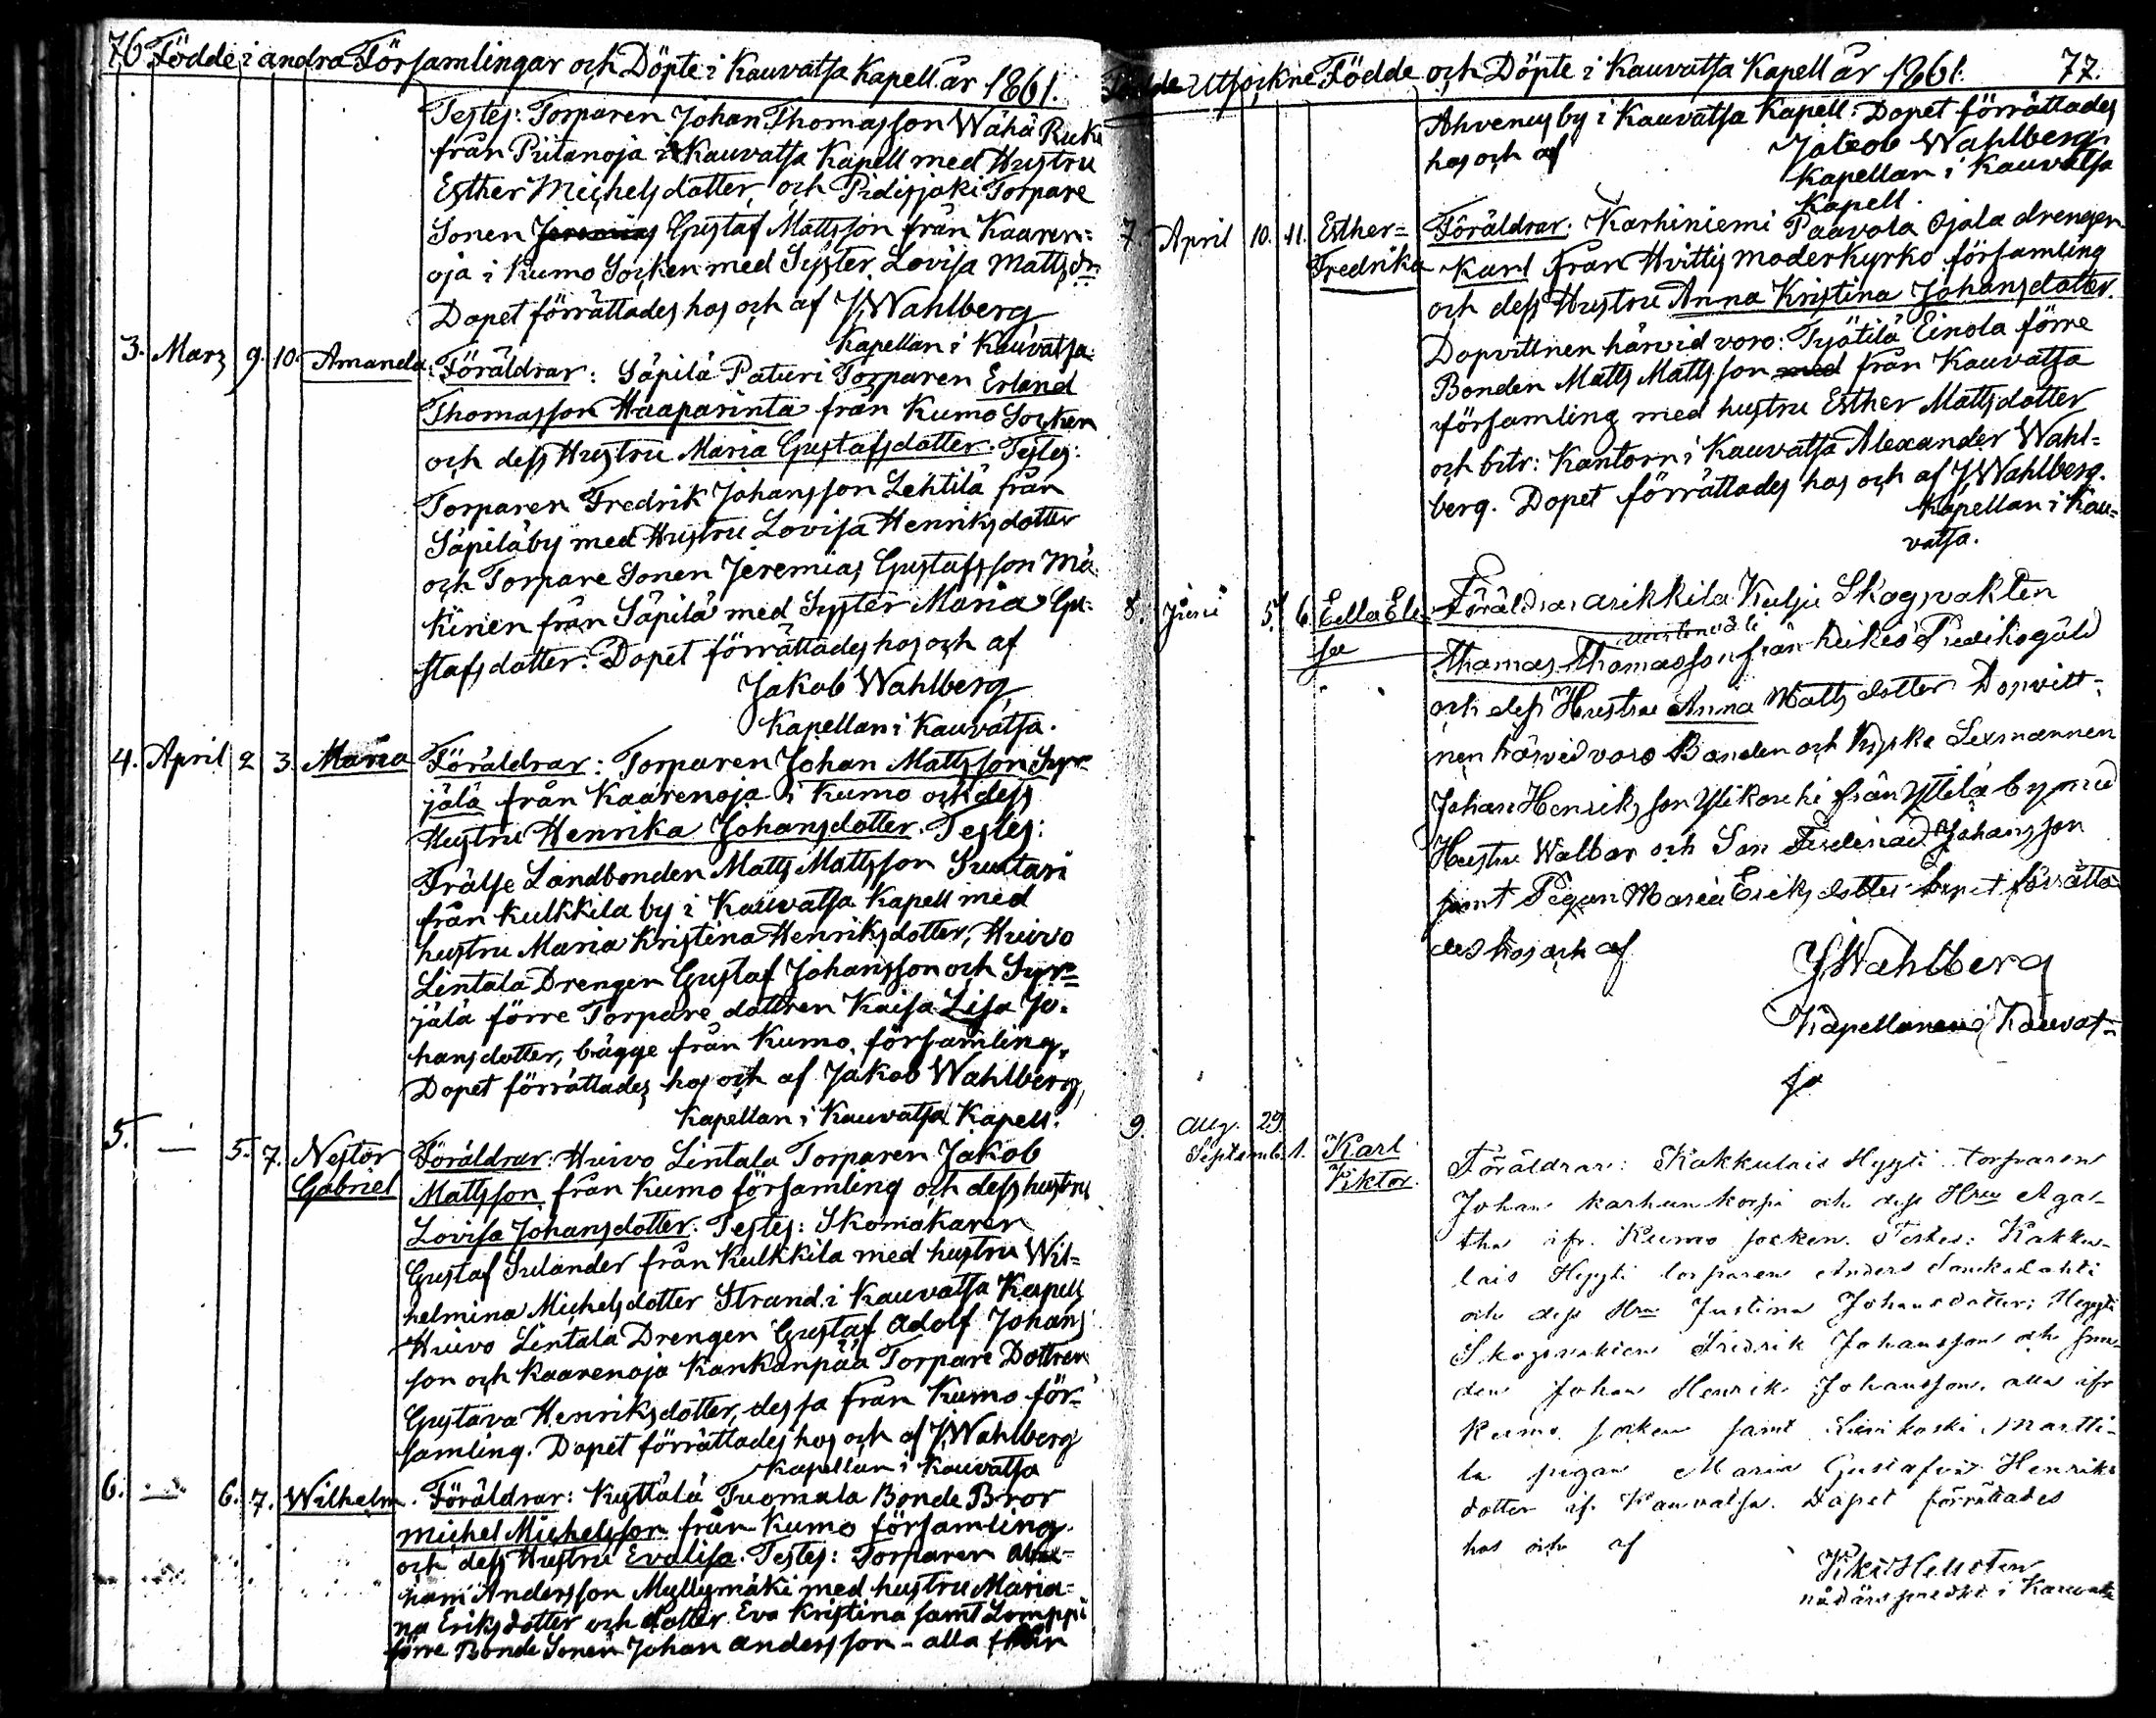 76 Födde i andra Församlingar och Döpte i Kauvatsa Kapell år 1861.
Testes: Torparen Johan Thomasson Wähä Ruku
från Piitanoja i Kauvatsa Kapell med Hustru
Esther Michelsdotter, och Pidisjoki Torpare
Sonen Jeremias Gustaf Mattsson från Kaaren=
oja i Kumo Socken med Syster Lovisa Mattsdr.
Dopet förrättades hos och af J. Wahlberg
Kapellan i Kauvatsa.
3. Mars 9. 10. Amanda. Föräldrar: Säpilä Paturi Torparen Erland
Thomasson Haaparinta från Kumo Socken
och dess Hustru Maria Gustafsdotter. Testes:
Torparen Fredrik Johansson Lehtilä från
Säpiläby med Hustru Lovisa Henriksdotter
och Torpare Sonen Jeremias Gustafsson Mä
kinen från Säpilä med Syster Maria Gu=
stafsdotter. Dopet förrättades hos och af
Jakob Wahlberg,
Kapellan i Kauvatsa.
4. April 2 3. Maria Föräldrar: Torparen Johan Mattsson Syr=
jälä från Kaarenoja i Kumo och dess
Hustru Henrika Johansdotter. Testes:
Frälse Landbonden Matts Mattsson Suutari
från Kulkkila by i Kauvatsa Kapell med
hustru Maria Kristina Henriksdotter, Huivo
Lintala Drengen Gustaf Johansson och Syr=
jälä förre Torpare dottren Kaisa Lisa Jo=
hansdotter, bägge från Kumo församling.
Dopet förrättades hos och af Jakob Wahlberg,
Kapellan i Kauvatsa Kapell.
5. — 5. 7. Nestor Föräldrar: Huivo Lintala Torparen Jakob
Gabriel Mattsson från Kumo församling och dess hustru
Lovisa Johansdotter. Testes: Skomakaren
Gustaf Sulander från Kulkkila med hustru Wil=
helmina Michelsdotter Strand i Kauvatsa Kapell,
Huivo Lintala Drengen Gustaf Adolf Johans
son och Kaarenoja Kankanpää Torpare Dottren
Gustava Henriksdotter, dessa från Kumo för=
samling. Dopet förrättades hos och af J. Wahlberg
Kapellan i Kauvatsa
6. — 6. 7. Wilhelm. Föräldrar: Kyttälä Tuomala Bonde Bror
Michel Michelsson från Kumo församling
och dess Hustru Evalisa. Testes: Torparen Abra=
ham Andersson Myllymäki med hustru Maria=
na Eriksdotter och dotter Eva Kristina samt Lomppi
förre Bonde Sonen Johan Andersson – alla från
Födde Utsockne Födde och Döpte i Kauvatsa Kapell år 1861. 77.
Ahvenus by i Kauvatsa Kapell. Dopet förrättades
hos och af Jakob Wahlberg
Kapellan i Kauvatsa
Kapell.
7. April 10. 11. Esther= Föräldrar: Karhiniemi Paavola Ojala drengen
Fredrika Karl från Hvittis moderkyrko församling
och dess Hustru Anna Kristina Johansdotter.
Dopvittnen härvid voro: Tyätilä Einola förre
Bonden Matts Mattsson med från Kauvatsa
församling med hustru Esther Mattsdotter
och bitr: Kantorn i Kauvatsa Alexander Wahl=
berg. Dopet förrättades hos och af J. Wahlberg.
Kapellan i Kau=
vatsa.
8. Junii 5. 6. Eva Föräldrar Kulju Skogvakten
sa Thomas Thomasson från
och dess Hustru Anna Matts dotter Dopvitt=
nen härvid voro Bonden och Lexmannen
Johan Henriks son från Yttilä by med
Hustru Walbor och Son Ferdinad Johansson
samt Pigan Maria Eriks dotter Dopet förrätta
des hos och af J. Wahlberg
Kapellanen i Kauvat=
sa
9. Aug. 29.
Septemb. 1. Karl Föräldrar: Kakkulais Hyyti torparen
Viktor. Johan Karhunkorpi och dess Hru Aga=
tha ifr. Kumo socken. Testes: Kakku=
lais Hyyti torparen Anders
och dess Hru Justina Johansdotter; Hyyti
Skogvakten Fredrik Johansson och
den Johan Henrik Johansson, alla ifr
Kumo socken samt Martti=
la pigan Maria Gustafva Henriks
dotter ifr. Kauvatsa. Dopet förrättades
hos och af
Hellsten
nådårspredkt i Kauvatsa